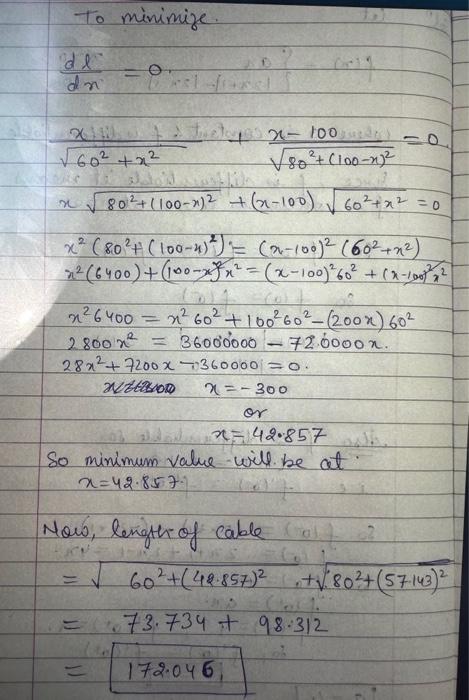 To minimize.
dl/dx = 0.
x/√(60² + x²) + (x - 100)/√(80² + (100-x)²) = 0
x √(80² + (100-x)²) + (x-100) √(60² + x²) = 0
x² (80² + (100-x)²) = (x-100)² (60² + x²)
x² (6400) + (100-x)² x² = (x-100)² 60² + (x-100)² x²
x² 6400 = x² 60² + 100² 60² - (200x) 60²
2800x² = 36000000 - 720000x.
28x² + 7200x - 360000 = 0.
x = -300
or
x = 42.857
So minimum value will be at
x = 42.857
Now, length of cable
= √(60² + (42.857)²) + √(80² + (57.143)²)
= 73.734 + 98.312
= 172.046